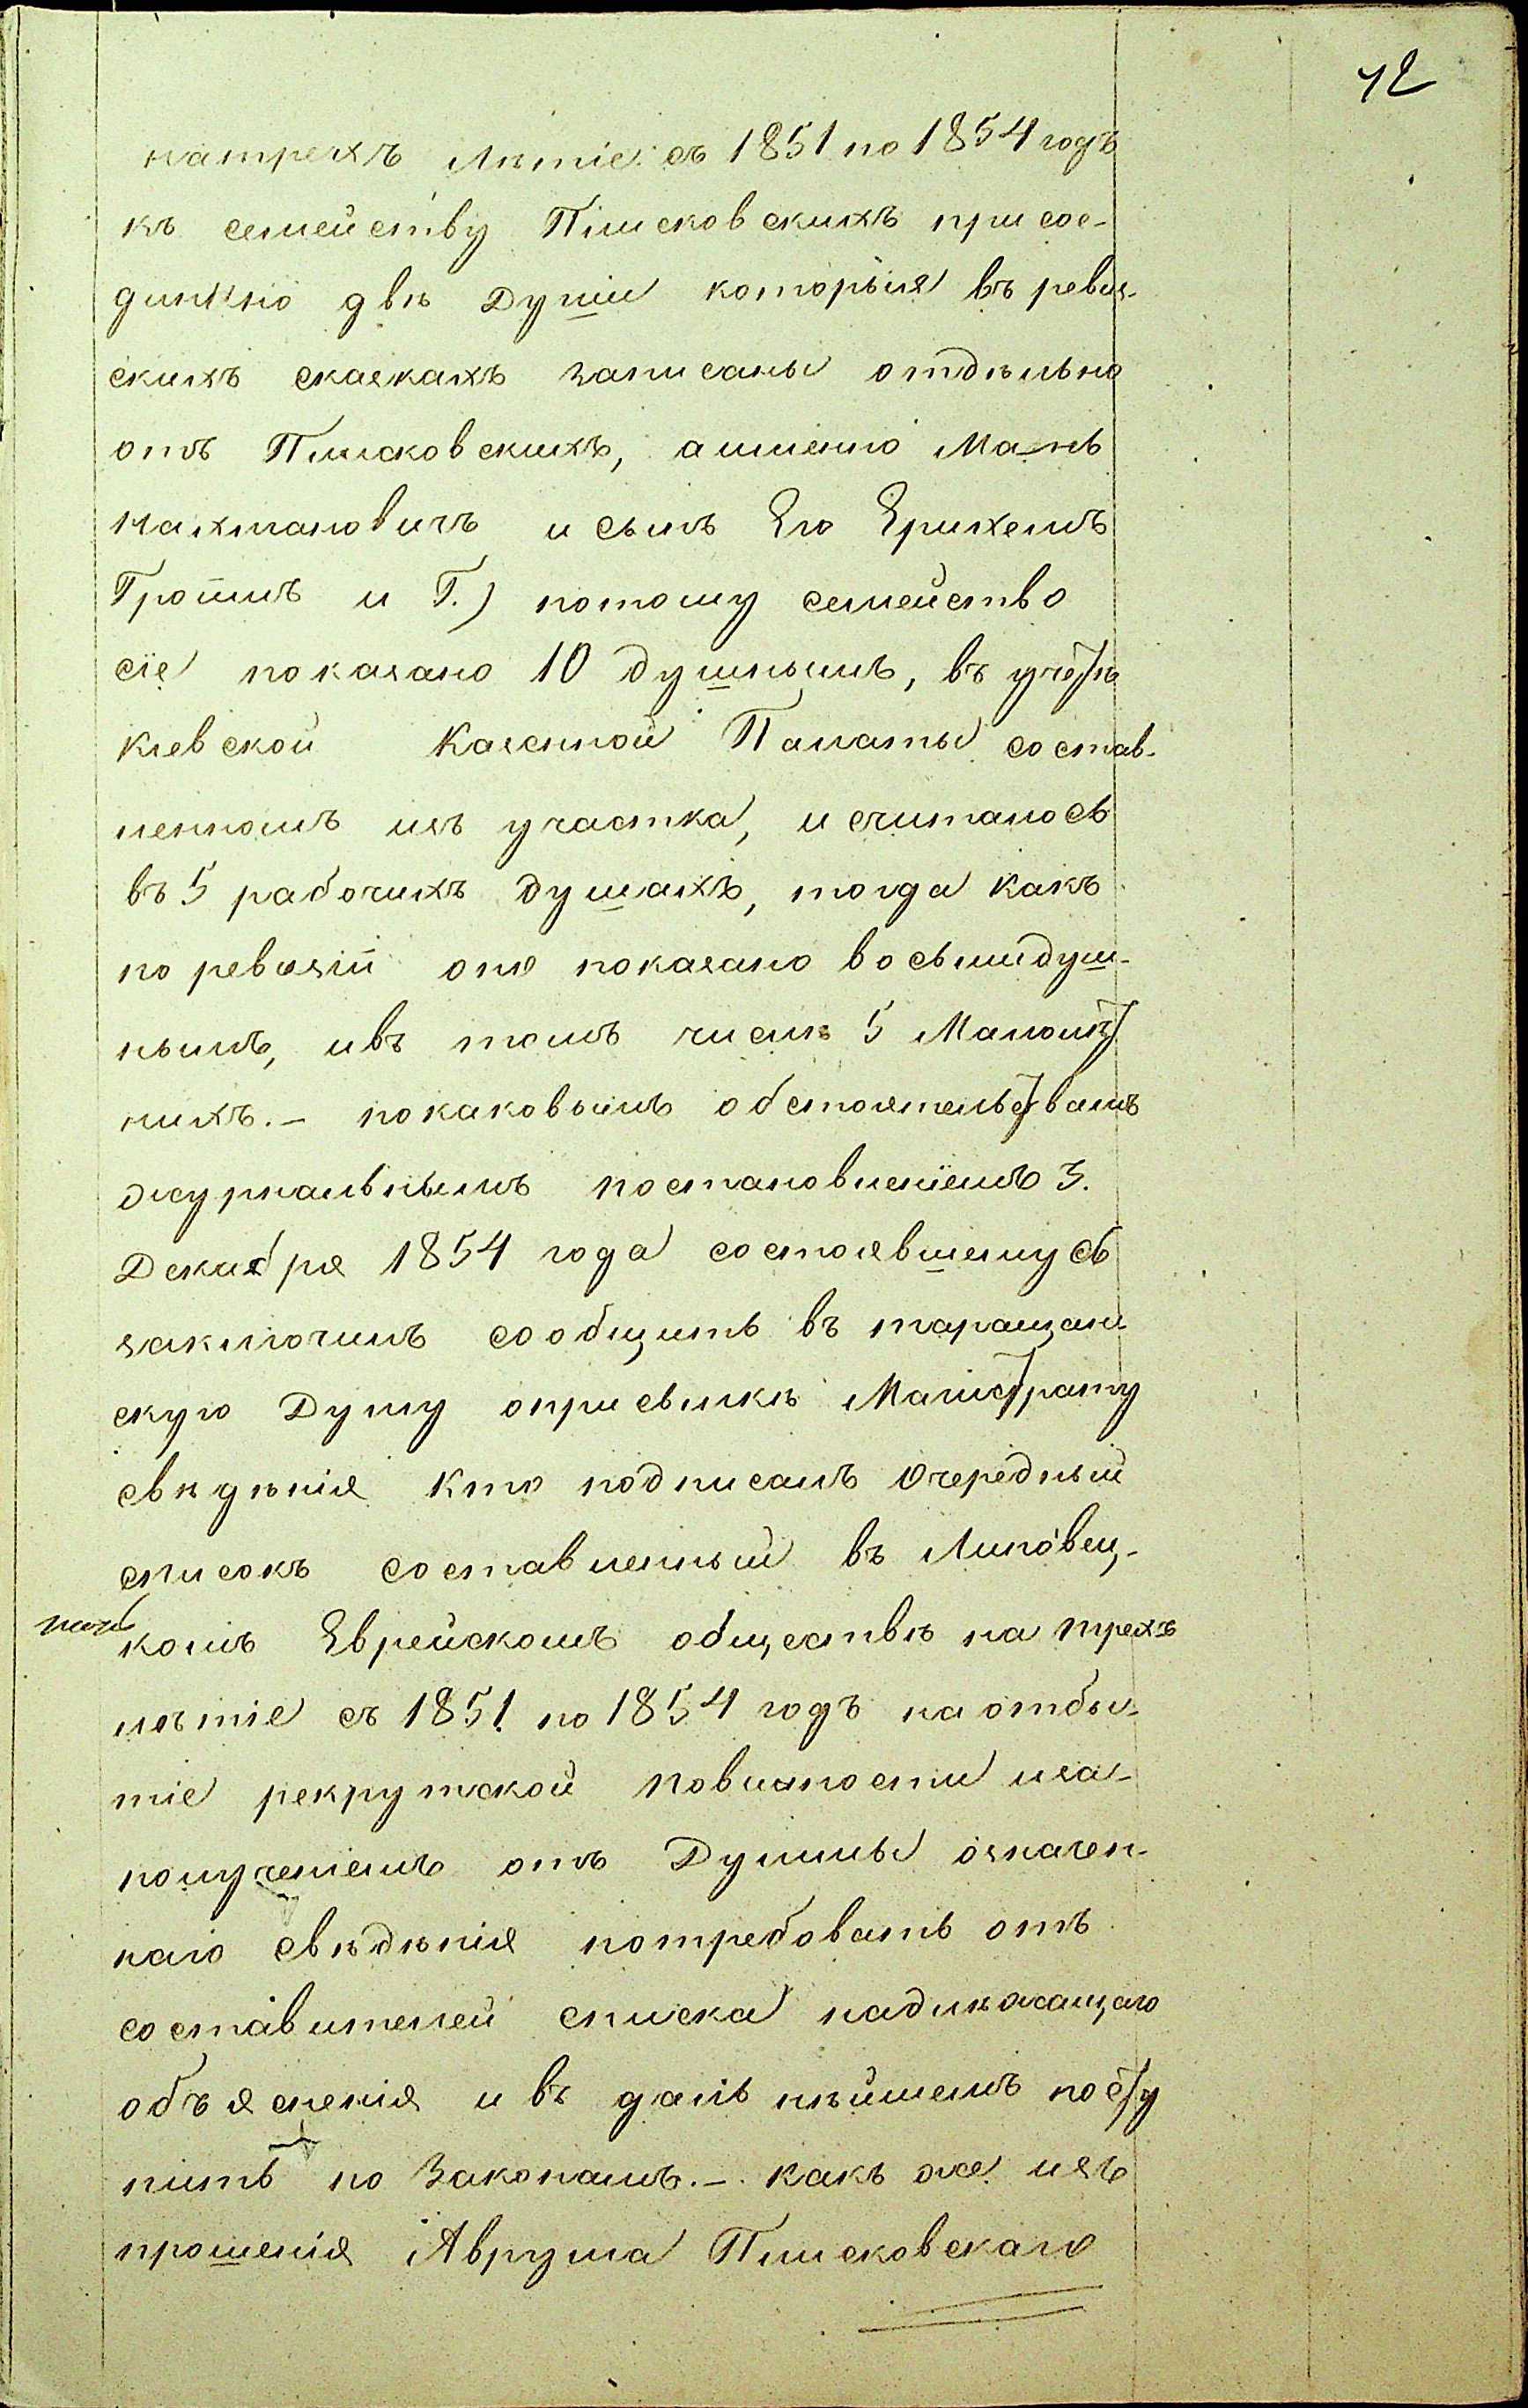 42
натрехъ лѣтіе съ 1851 по 1854 годъ
къ семейству Плисковскихъ присое-
динено двѣ души которыя въ ревиз-
скихъ сказкахъ записаны отдѣльно
отъ Плисковскихъ, аименно
Нахмановичъ и сынъ Его
и Г.) потому семейство
сіе показано 10 душнымъ, въ
Кіевской Казенной Палаты состав-
ленномъ изъ участка, исчиталось
въ 5 рабочихъ душахъ, тогда какъ
по ревизіи оно показано восьмидуш-
нымъ, ивъ томъ числѣ 5 Малолѣт
нихъ. – покаковымъ обстоятельствамъ
журнальнымъ постановленіемъ 3.
Декабря 1854 года состоявшемусь
заключилъ сообщить въ таращан
скую Думу оприсылкѣ Магистрату
свѣдѣнія кто подписалъ Очередный
списокъ составленный въ Липовец-
комъ Еврейскомъ обществѣ на трехъ
лѣтіе съ 1851 по 1854 годъ на отбы-
тіе рекрутской повинности иза-
полученіемъ отъ Думмы означен-
наго свѣдѣнія потребовать отъ
составителей списка надлѣжащаго
объясненія и въ даль нѣйшемъ посту
пить по Законамъ. – Какъ же изъ
прошенія Аврума Плисковскаго